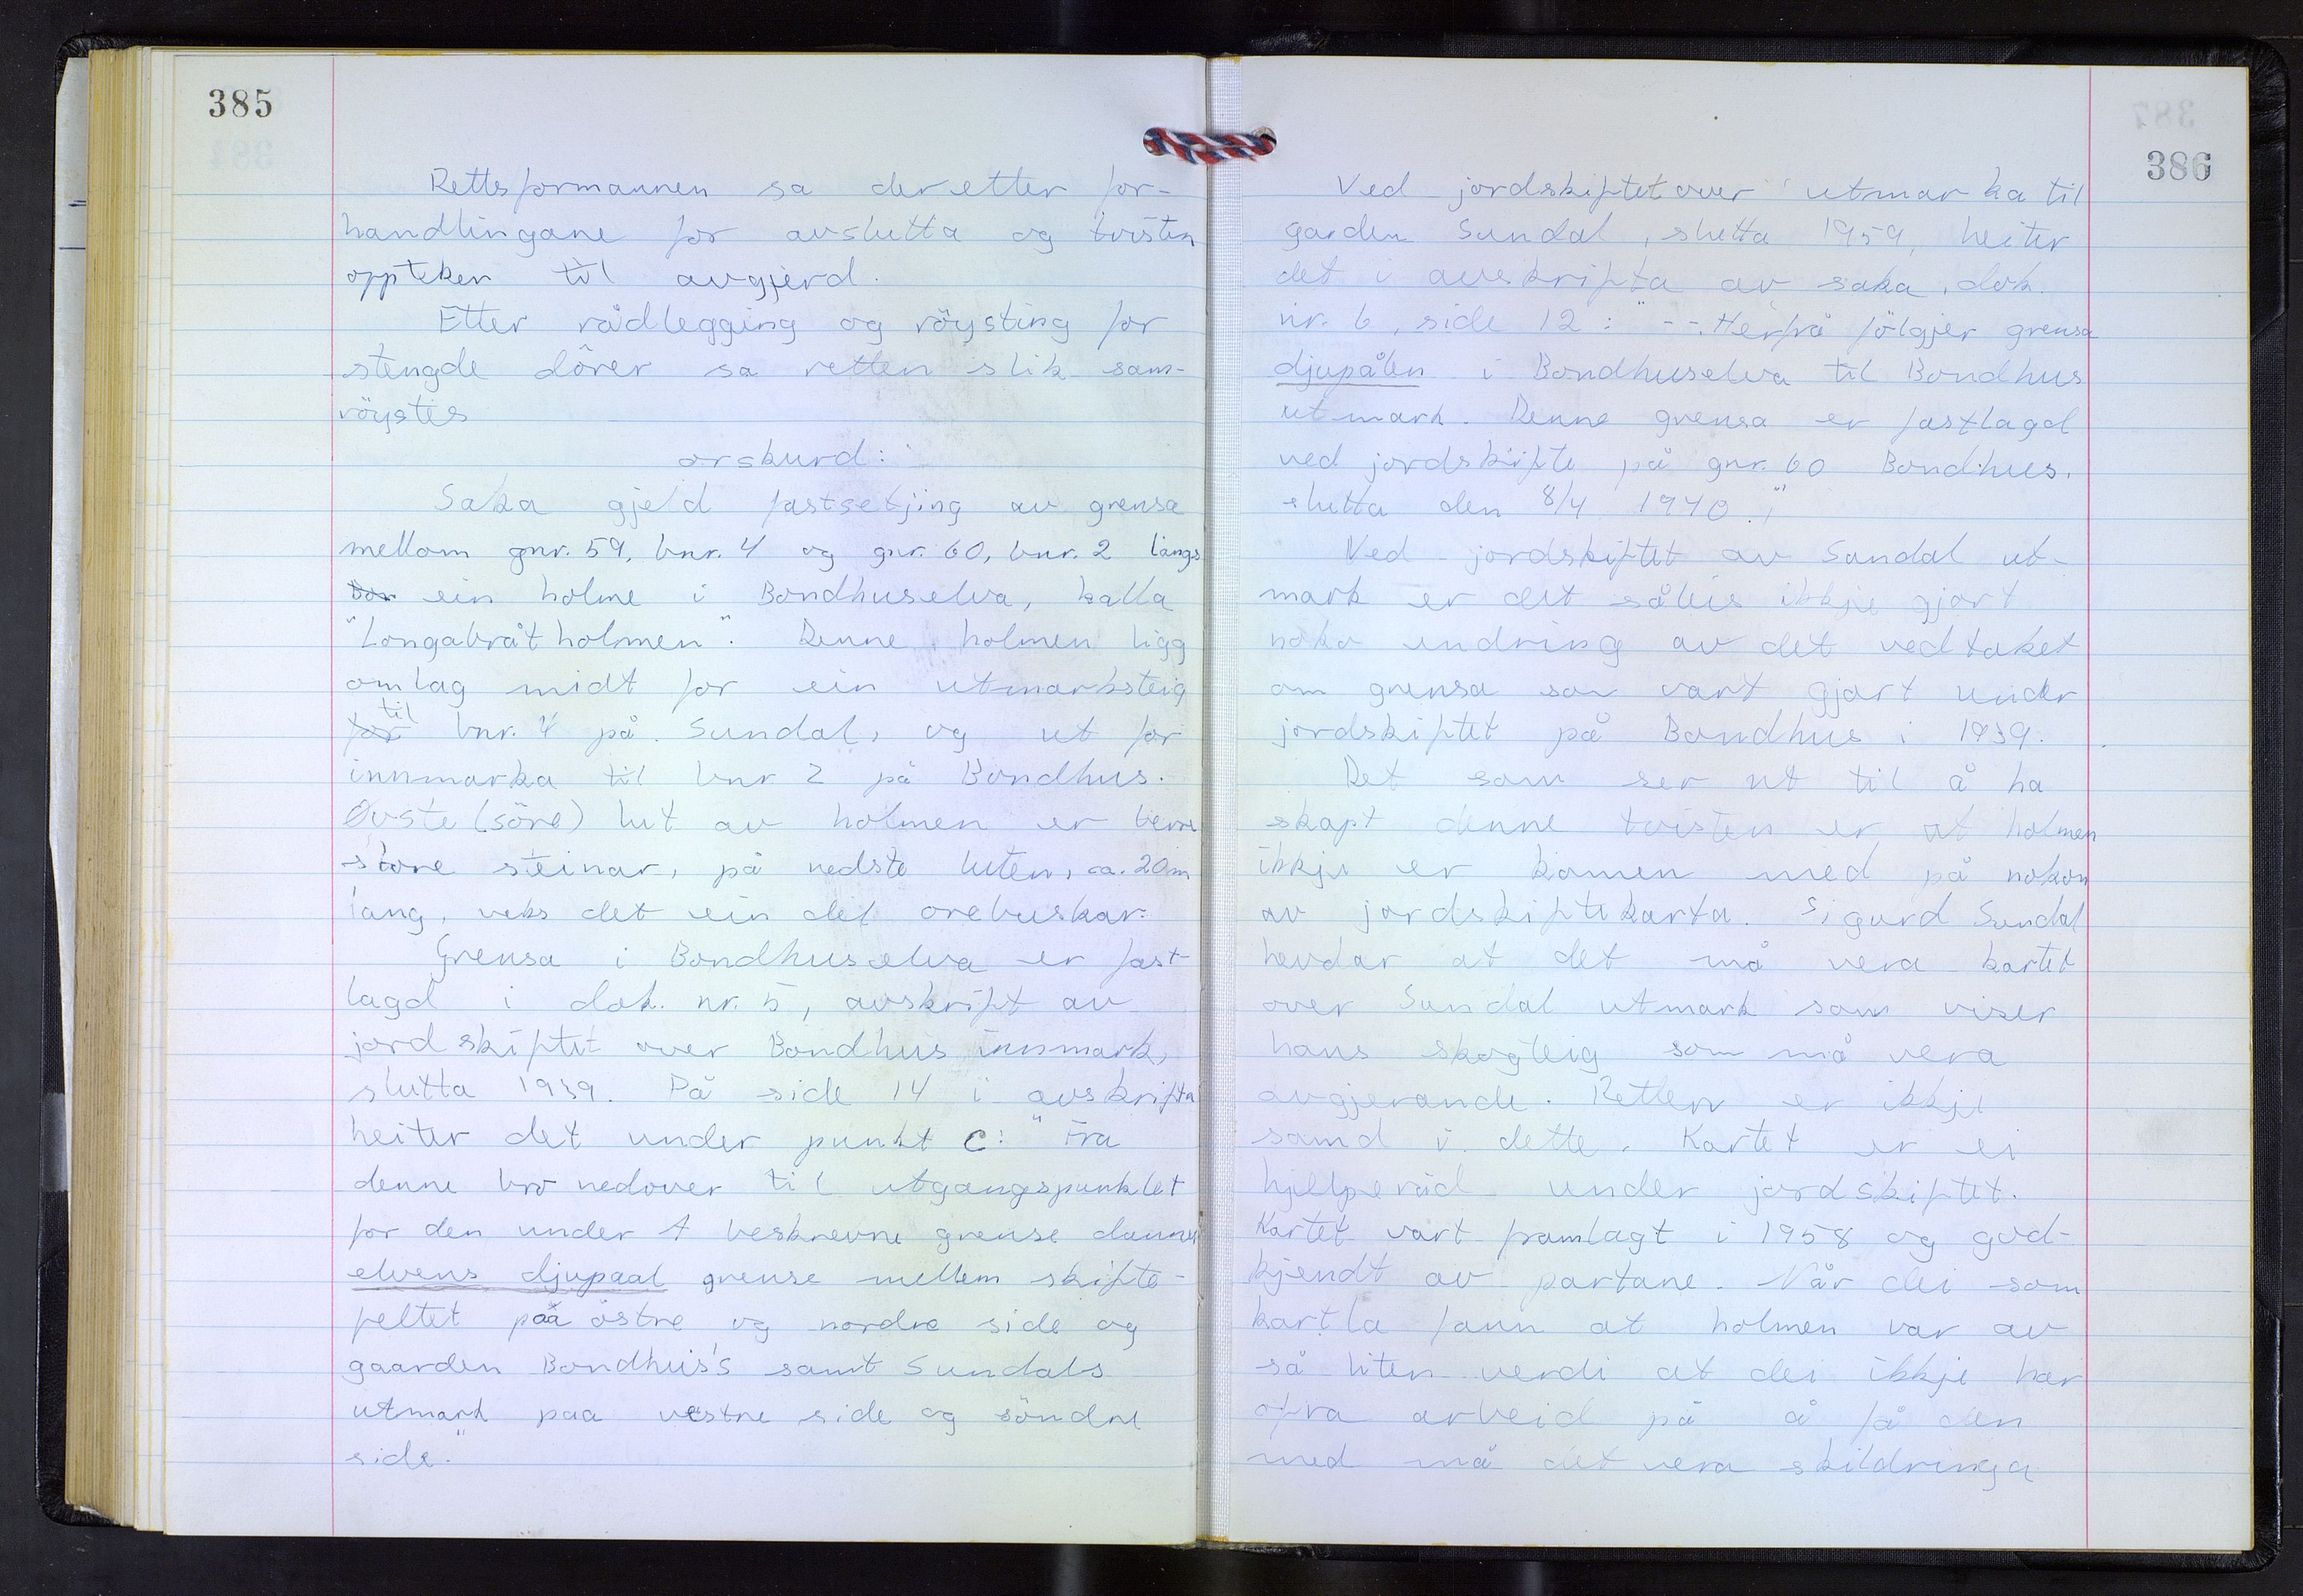 385
Rettsformannen sa deretter for-
handlingane for avslutta og tvisten
oppteken til avgjerd.
Etter rådlegging og röysting for
stengde dörer sa retten slik sam-
röystes
orskurd:
Saka gjeld fastsetjing av grensa
mellom gnr. 59, bnr. 4 og gnr. 60, bnr. 2 langs
ein holme i Bondhuselva, kalla
"Longabråtholmen". Denne holmen ligg
omlag midt for ein utmarksteig
for til bnr. 4 på Sundal, og ut for
innmarka til bnr 2 på Bondhus.
Övste (söre) lut av holmen er berre
store steinar, på nedste luten, ca. 20 m
lang, veks det ein del orebuskar.
Grensa i Bondhuselva er fast-
lagd i dok. nr. 5, avskrift av
jordskiftet over Bondhus innmark,
slutta 1939. På side 14 i avskrifta
heiter det under punkt C: "Fra
denne bro nedover til utgangspunktet
for den under A beskrevne grense danner
elvens djupaal grense mellem skifte-
feltet på östre og nordre side og
gaarden Bondhus's samt Sundals
utmark paa vestre side og söndre
side."
386
Ved jordskiftet over utmarka til
garden Sundal, slutta 1959, heiter
det i avskrifta av saka, dok.
nr. 6, side 12: "--. Herfrå fölgjer grensa
djupålen i Bondhuselva til Bondhus
utmark. Denne grensa er fastlagd
ved jordskifte på gnr. 60 Bondhus,
slutta den 8/4 1940."
Ved jordskiftet av Sundal ut-
mark er det såleis ikkje gjort
noko endring av det vedtaket
om grensa som vart gjort under
jordskiftet på Bondhus i 1939.
Det som ser ut til å ha
skapt denne tvisten er at holmen
ikkje er komen med på nokon
av jordskiftekarta. Sigurd Sundal
hevdar at det må vera kartet
over Sundal utmark som viser
hans skogteig som må vera
avgjerande. Retten er ikkje
samd i dette. Kartet er ei
hjelperåd under jordskiftet.
Kartet vart framlagt i 1958 og god-
kjendt av partane. Når dei som
kartla fann at holmen var av
så liten verdi at dei ikkje har
ofra arbeid på å få den
med må det vera skildringa